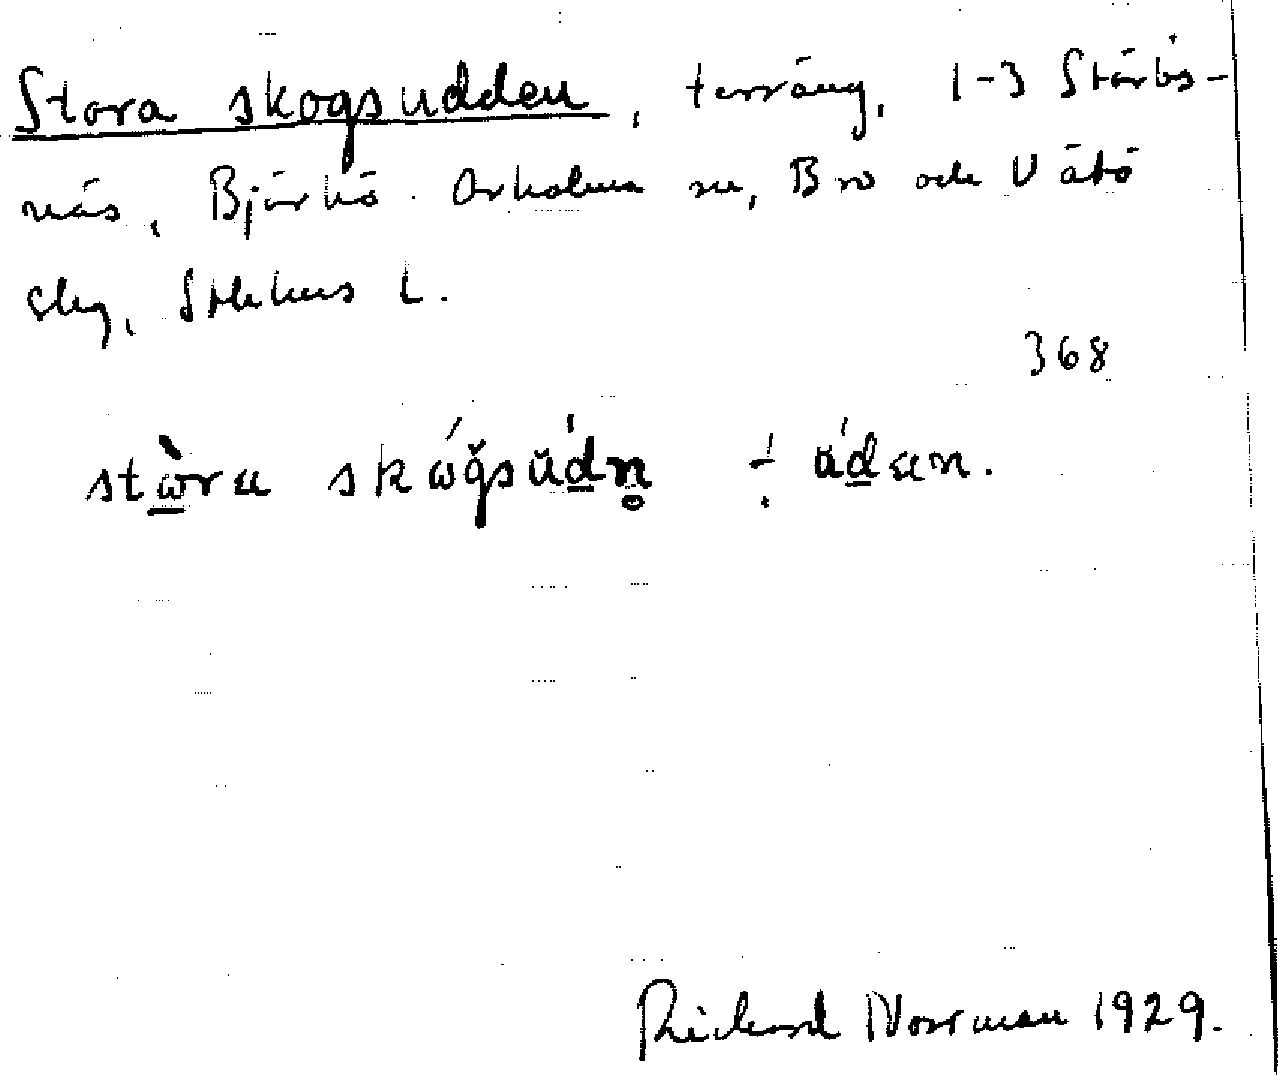 Stora skogsudden, terräng, 1-3 Stärbs-
näs, Björkö-Arholma sn, Bro och Vätö
slg, Sthlms l.
368
stὼra skώǧsŭ́dn̥ ÷ ŭ́dan.
Richard Norrman 1929.